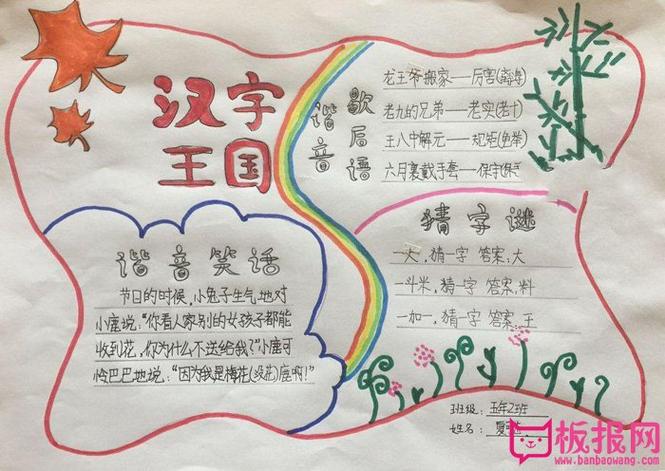 汉字
王国
谐音
歇后语
龙王爷搬家——厉害(离海)
老九的兄弟——老实(老十)
王八中解元——规矩(龟举)
六月裹戴手套——保守(保手)
谐音笑话
节日的时候,小兔子生气地对
小鹿说:“你看人家别的女孩子都能
收到花,你为什么不送给我?”小鹿可
怜巴巴地说:“因为我是梅花(没花)鹿啊!”
猜字谜
一人,猜一字 答案:大
一斗米,猜一字 答案:料
一加一,猜一字 答案:王
班级: 五年2班
姓名: 夏
板报网
www.banbaowang.com